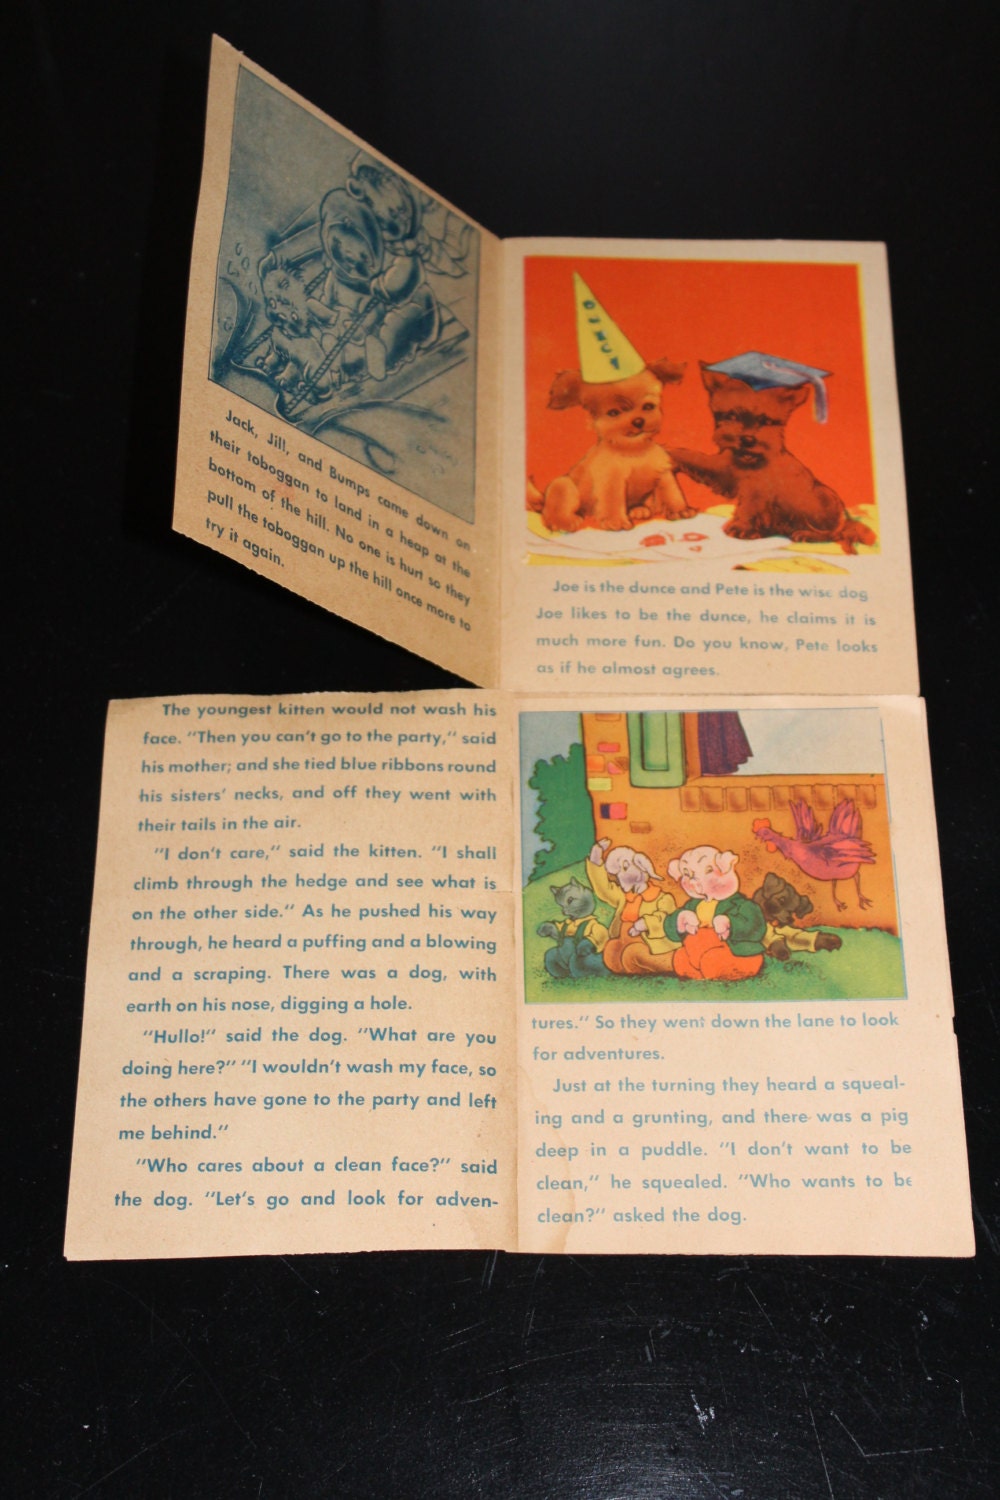 Jack, Jill, and Bumps came down on
their toboggan to land in a heap at the
bottom of the hill. No one is hurt so they
pull the toboggan up the hill once more to
try it again.
DUNCE
Joe is the dunce and Pete is the wise dog
Joe likes to be the dunce, he claims it is
much more fun. Do you know, Pete looks
as if he almost agrees.
The youngest kitten would not wash his
face. "Then you can't go to the party," said
his mother; and she tied blue ribbons round
his sisters' necks, and off they went with
their tails in the air.
"I don't care," said the kitten. "I shall
climb through the hedge and see what is
on the other side." As he pushed his way
through, he heard a puffing and a blowing
and a scraping. There was a dog, with
earth on his nose, digging a hole.
"Hullo!" said the dog. "What are you
doing here?" "I wouldn't wash my face, so
the others have gone to the party and left
me behind."
"Who cares about a clean face?" said
the dog. "Let's go and look for adven-
tures." So they went down the lane to look
for adventures.
Just at the turning they heard a squeal-
ing and a grunting, and there was a pig
deep in a puddle. "I don't want to be
clean," he squealed. "Who wants to be
clean?" asked the dog.